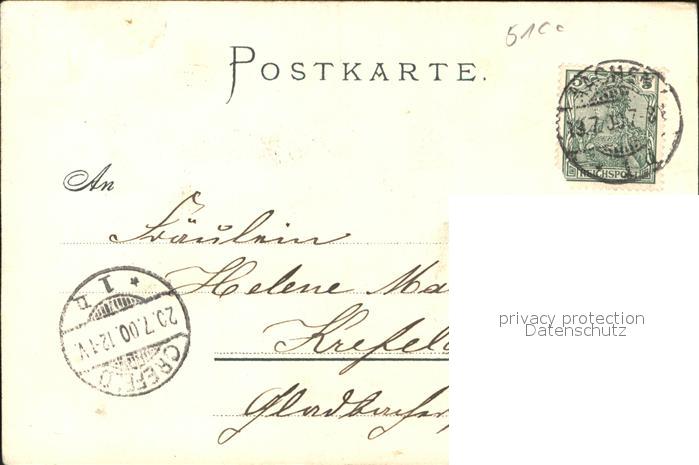 51cc
POSTKARTE.
AACHEN
REICHSPOST
An
Fräulein
Helene Ma
Krefeld
Gladbacher
1 D
20.7.00.12-1V
CREFELD
privacy protection
Datenschutz